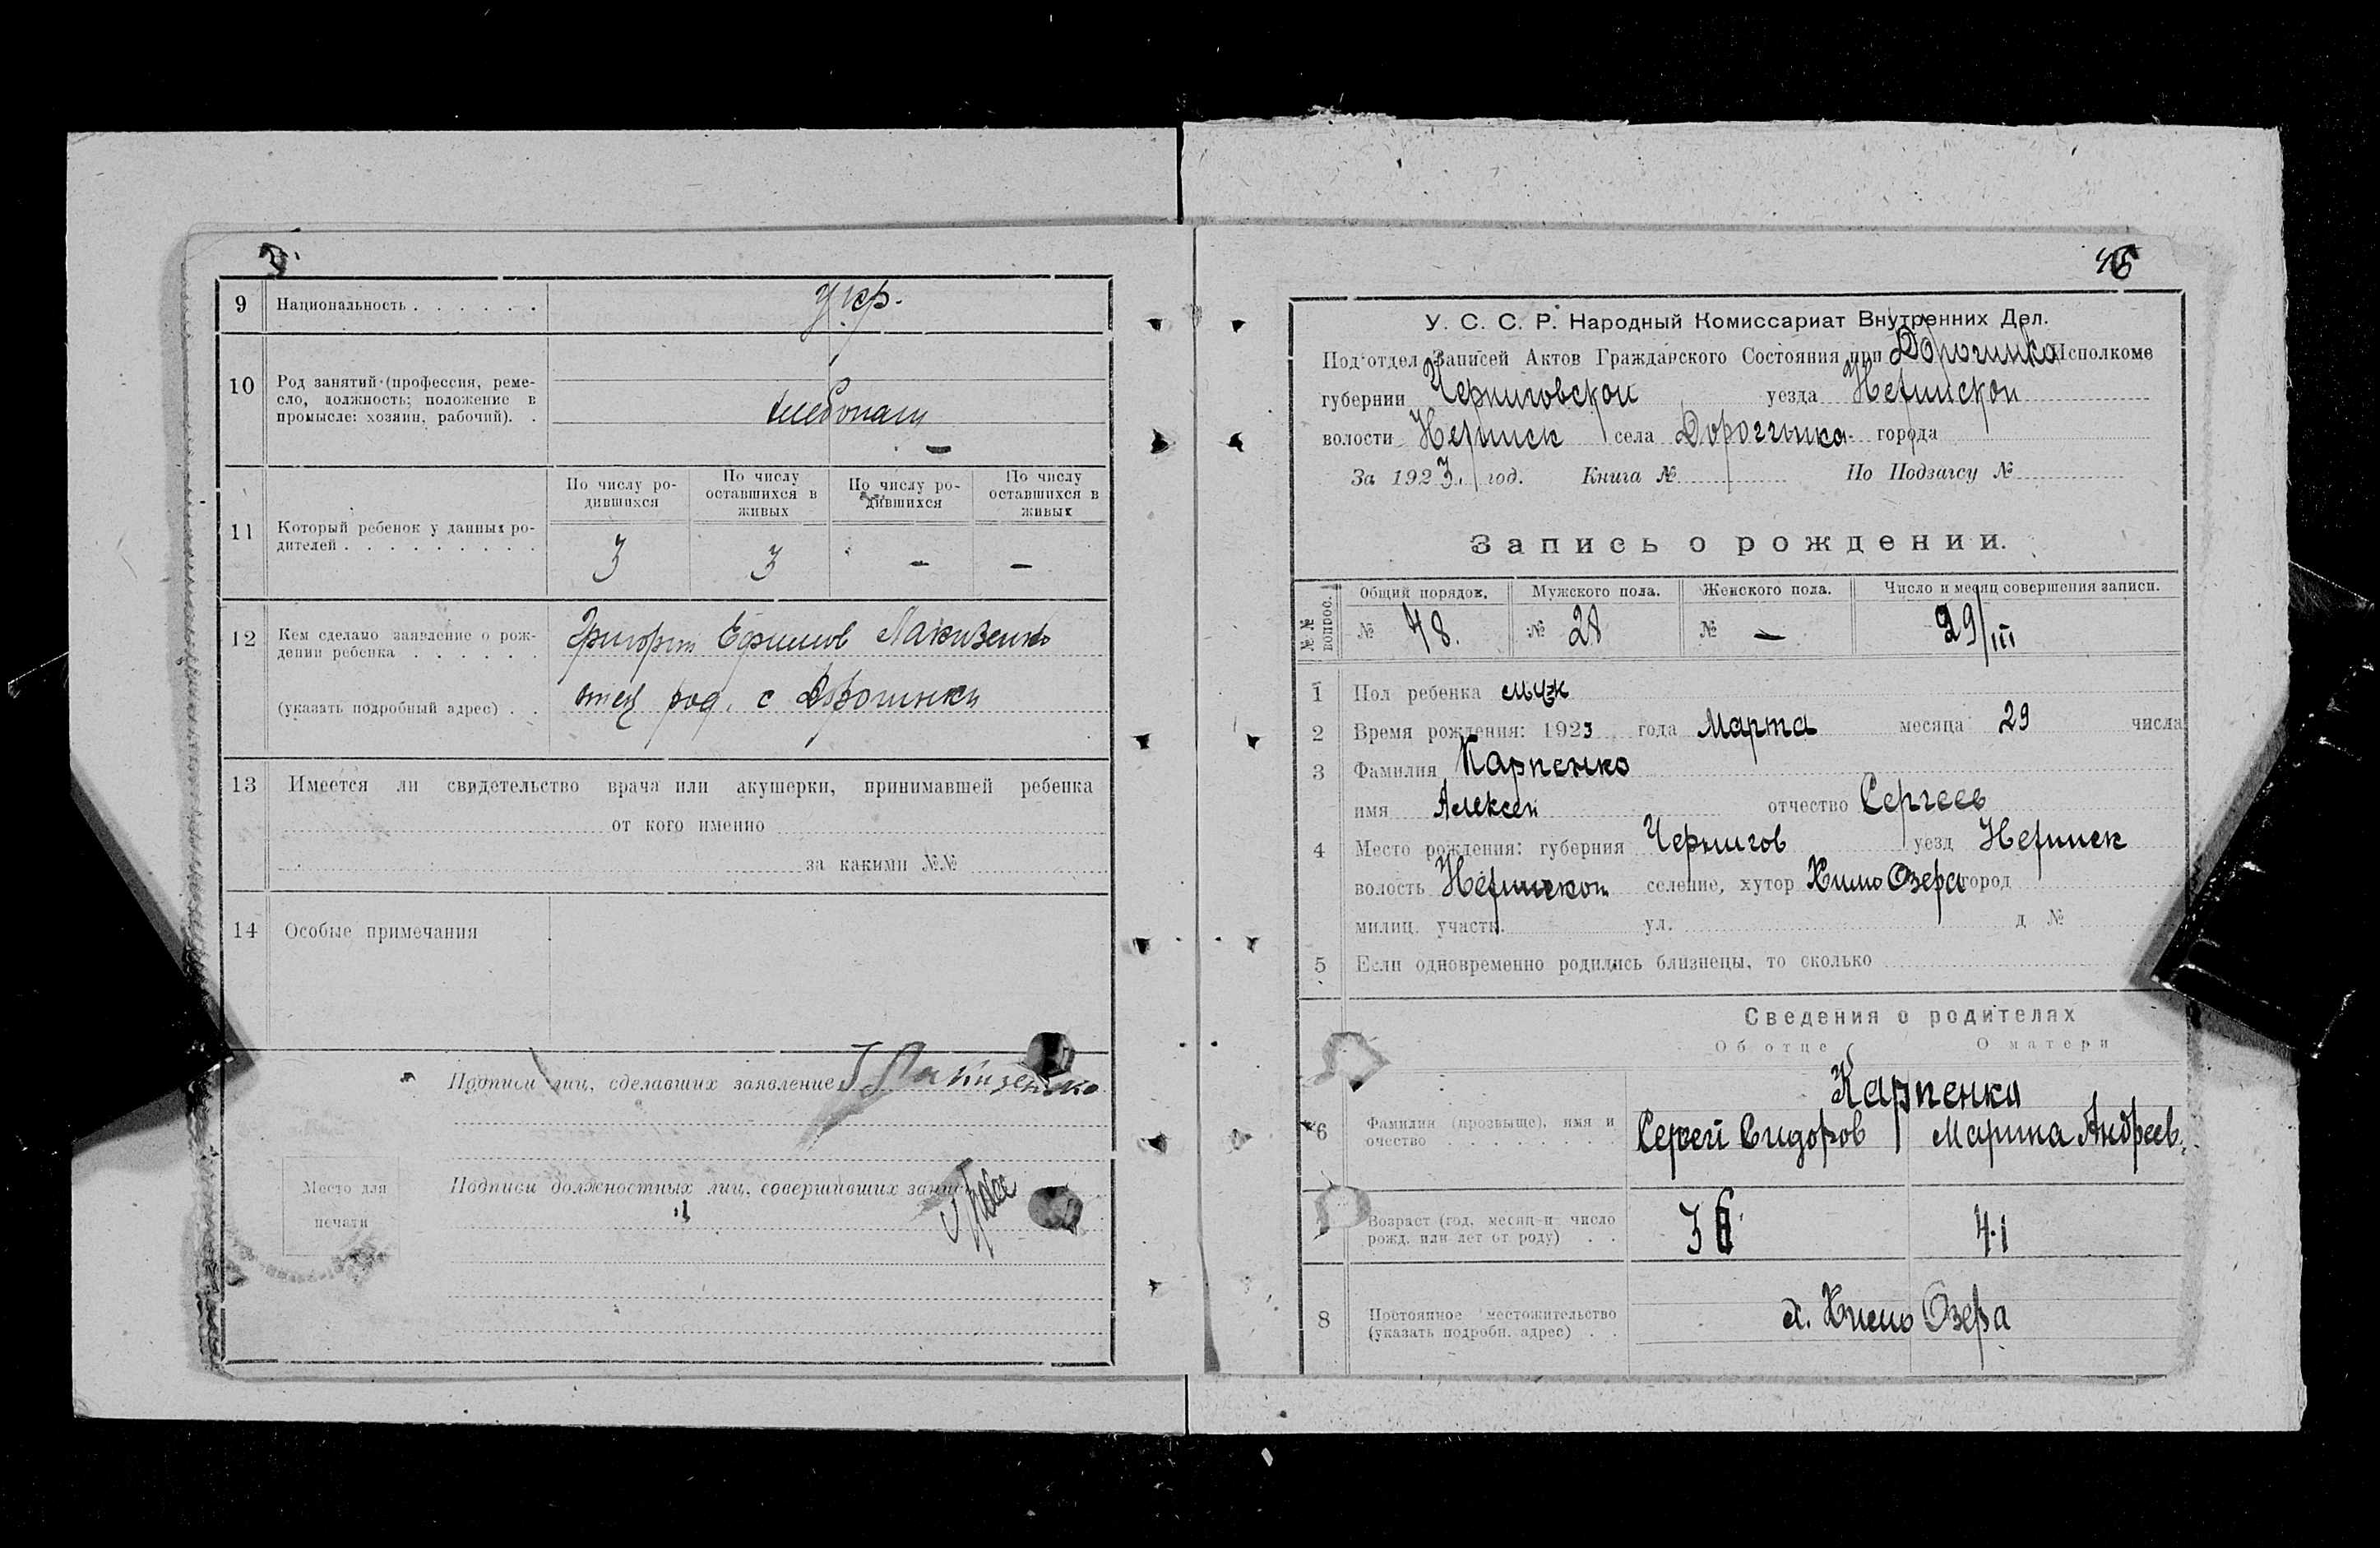 9 Национальность . . . . . . укр.
10 Род занятий (профессия, реме-
сло, должность; положение в
промысле: хозяин, рабочий). .
По числу ро-
дившихся
По числу
оставшихся в
живых
По числу ро-
дившихся
По числу
оставшихся в
живых
11 Который ребенок у данных ро-
дителей . . . . . . . . . 3 3 - -
12 Кем сделано заявление о рож-
дении ребенка . . . . . . Григорий Ефимов Лакизенко
(указать подробный адрес) . . отец род. с Дорогинки
13 Имеется ли свидетельство врача или акушерки, принимавшей ребенка
от кого именно
за какими №№
14 Особые примечания
Подписи лиц, сделавших заявление Г Лакизенко
Место для
печати
Подписи должностных лиц, совершивших запись
46
У. С. С. Р. Народный Комиссариат Внутренних Дел.
Под'отдел Записей Актов Гражданского Состояния при Дорогинка Исполкоме
губернии Черниговской уезда Нежинской
волости Нежинск села Дорогинка города
За 1923 год. Книга № По Подзагсу №
Запись о рождении.
№№ вопрос.
Общий порядок. Мужского пола. Женского пола. Число и месяц совершения записи.
№ 48. № 28 № — 29/III
1 Пол ребенка муж
2 Время рождения: 1923 года Марта месяца 29 числа
3 Фамилия Карпенко
имя Алексей отчество Сергеев
4 Место рождения: губерния Чернигов уезд Нежинск
волость Нежинской селение, хутор Химо Озера город
милиц. участк. ул. д №
5 Если одновременно родились близнецы, то сколько
Сведения о родителях
Об отце О матери
Карпенко
6 Фамилия (прозвыще), имя и
очество . . . . . . . . Сергей Сидоров Марина Андреев.
Возраст (год, месяц и число
рожд. или лет от роду) . . 36 41
8 Постоянное местожительство
(указать подробн. адрес) . . х. Химо Озера